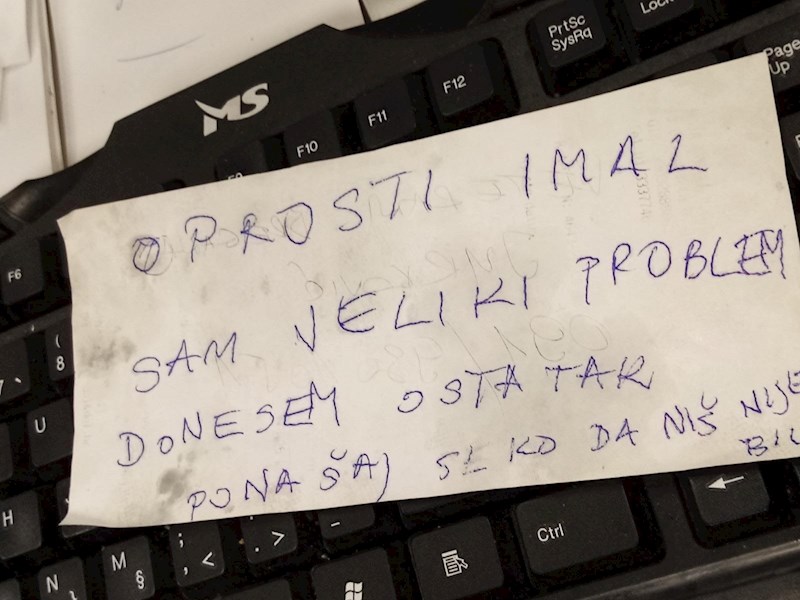 MS
PrtSc
SysRq
Lock
Page
Up
F12
F11
F10
F9
F6
OPROSTI IMAL
SAM VELIKI PROBLEM
DONESEM OSTATAK
PONAŠAJ SE KO DA NIŠ NIJE
BIL
(
8
U
H
N
M
§
;
, <
. >
-
Ctrl